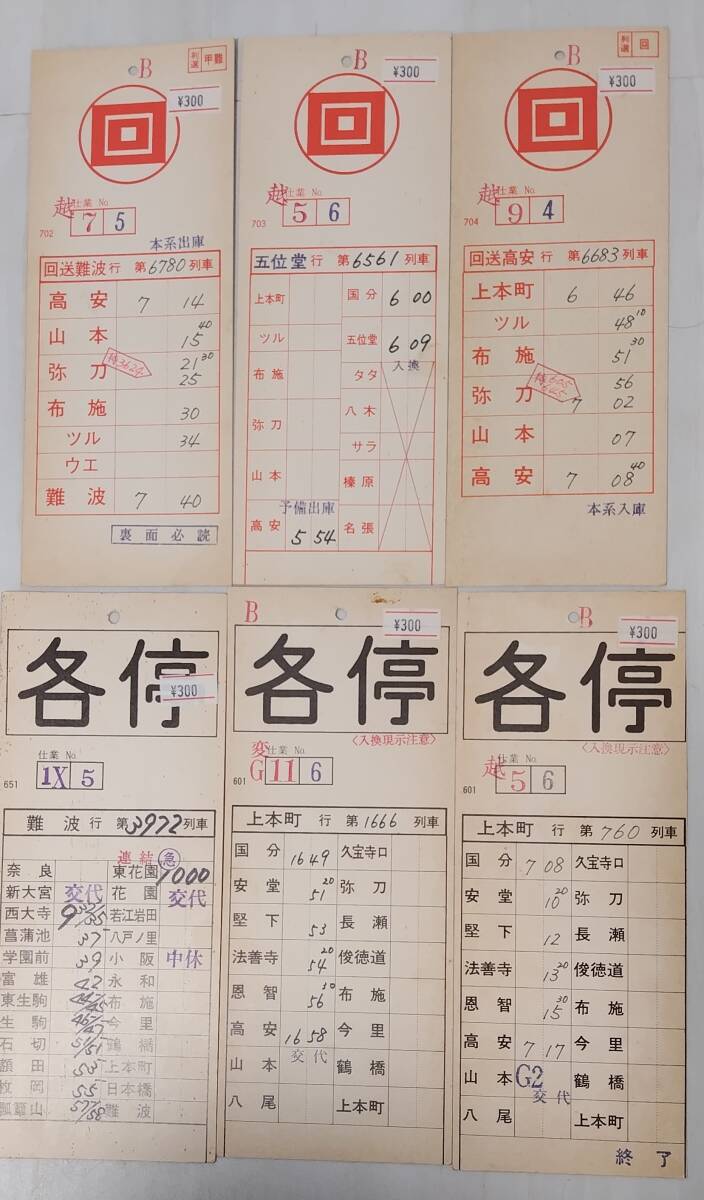 B
列選 甲難
¥300
回
越
仕業 No.
7 5
702
本系出庫
回送難波 行 第6780列車
高安 7 14
山本 15 40
特3624
弥刀 21 30
25
布施 30
ツル 34
ウエ
難波 7 40
裏面必読
B
¥300
回
越
仕業 No.
5 6
703
五位堂 行 第6561列車
上本町 国分 6 00
ツル 五位堂 6 09
入換
布施 タタ
弥刀 八木
サラ
山本 榛原
予備出庫
高安 5 54 名張
B
列選 回
¥300
回
越
仕業 No.
9 4
704
回送高安 行 第6683列車
上本町 6 46
ツル 48 10
布施 51 30
弥刀 56
7 02
山本 07
高安 7 08 40
本系入庫
各停
¥300
仕業 No.
1X 5
651
難波 行 第3972列車
連結 急
奈良 東花園 1000
新大宮 交代 花園 交代
西大寺 9 35 若江岩田
菖蒲池 37 八戸ノ里
学園前 39 小阪 中休
富雄 42 永和
東生駒 布施
生駒 47 今里
石切 51 鶴橋
額田 53 上本町
枚岡 55 日本橋
瓢簞山 58 難波
B
¥300
各停
〈入換現示注意〉
変
仕業 No.
G 11 6
601
上本町 行 第1666列車
国分 16 49 久宝寺口
安堂 51 20 弥刀
堅下 53 長瀬
法善寺 54 20 俊徳道
恩智 56 10 布施
高安 16 58 今里
交代
山本 鶴橋
八尾 上本町
B
¥300
各停
〈入換現示注意〉
越
仕業 No.
5 6
601
上本町 行 第760列車
国分 7 08 久宝寺口
安堂 10 20 弥刀
堅下 12 長瀬
法善寺 13 20 俊徳道
恩智 15 30 布施
高安 7 17 今里
山本 G2 鶴橋
交代
八尾 上本町
終了